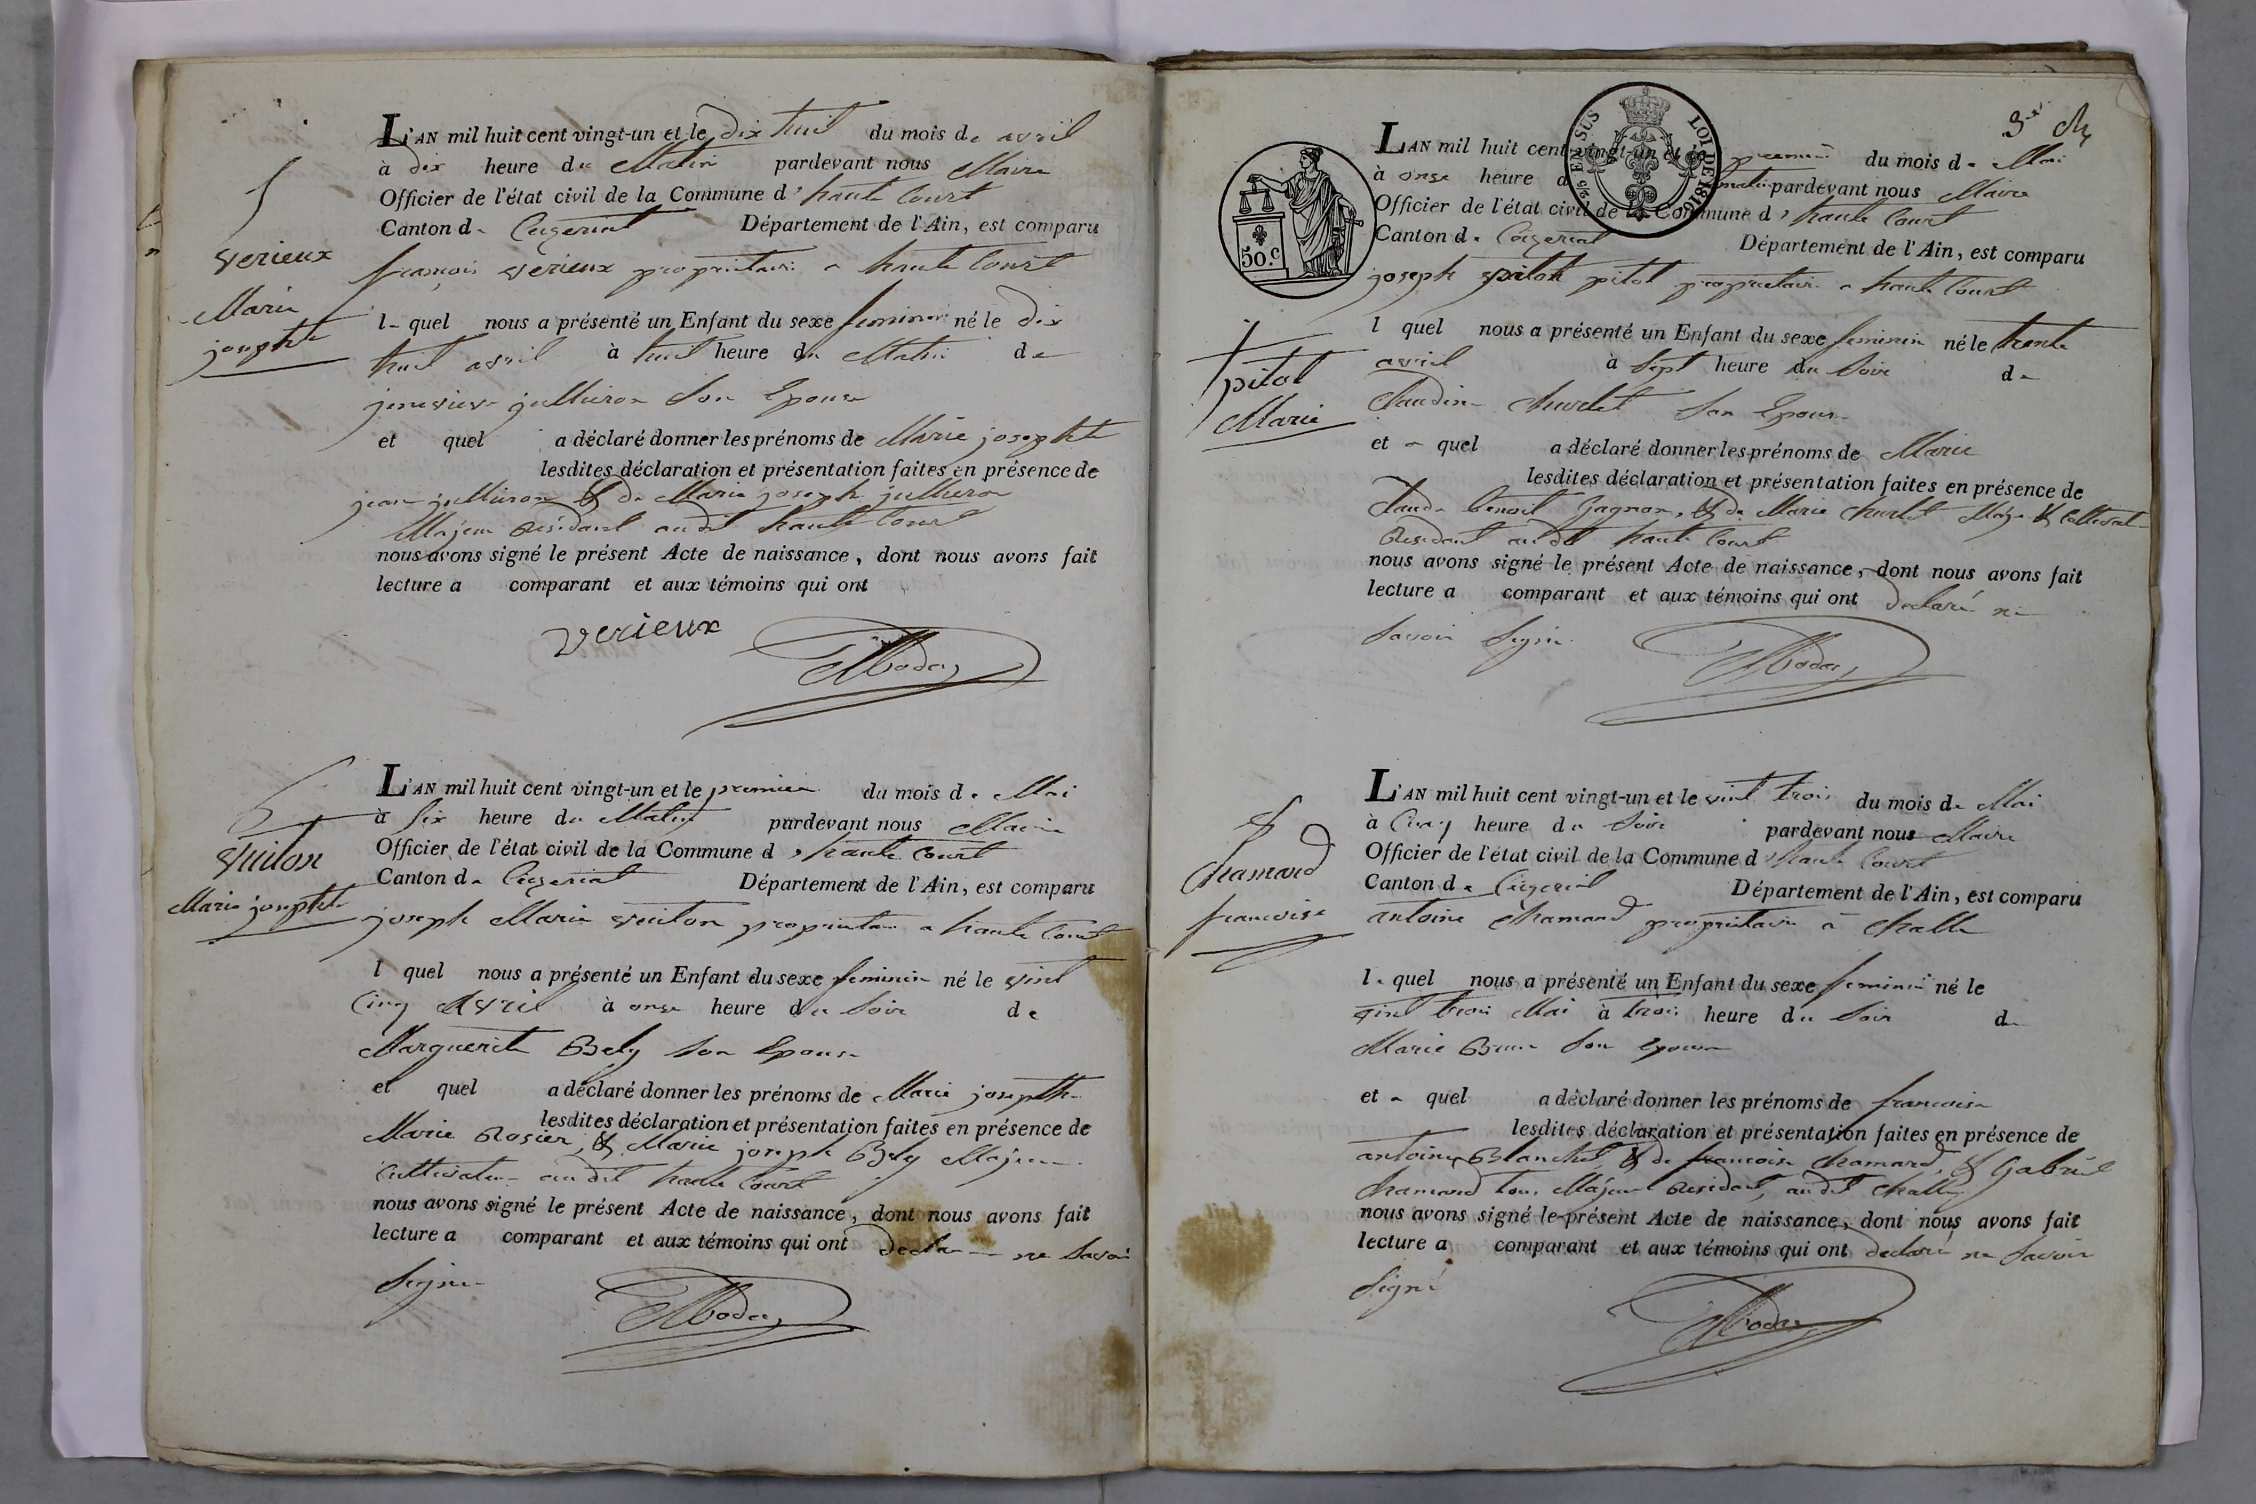 5
verieux
Marie
josephte
L'AN mil huit cent vingt-un et le dix huit du mois de avril
à dix heure du Matin pardevant nous Maire
Officier de l'état civil de la Commune d'haute Court
Canton de Ceyzeriat Département de l'Ain, est comparu
françois verieux proprietaire a haute Court
l- quel nous a présenté un Enfant du sexe feminin né le dix
huit avril à huit heure du Matin de
jenevieve jullieron Son Epouse
et quel a déclaré donner les prénoms de Marie josephte
lesdites déclaration et présentation faites en présence de
jean jullieron & de Marie joseph jullieron
Majeur Residant audit haute Court
nous avons signé le présent Acte de naissance, dont nous avons fait
lecture a comparant et aux témoins qui ont
verieux
6
vuiton
Marie josephte
L'AN mil huit cent vingt-un et le premier du mois de Mai
à Six heure du Matin pardevant nous Maire
Officier de l'état civil de la Commune d'haute Court
Canton de Ceyzeriat Département de l'Ain, est comparu
joseph Marie vuiton proprietaire a haute Court
l quel nous a présenté un Enfant du sexe feminin né le vint
Cinq Avril à onse heure du Soir de
Marguerite Bely Son Epouse
et quel a déclaré donner les prénoms de Marie josephte
lesdites déclaration et présentation faites en présence de
Marie Rosier, & Marie joseph Bely Majeur
Cultivateur audit haute Court
nous avons signé le présent Acte de naissance, dont nous avons fait
lecture a comparant et aux témoins qui ont declare ne Savoir
Signer
3
50.c
25 EN SUS
LOI DE 1816
7
pitot
Marie
L'AN mil huit cent vingt-un et le premier du mois de Mai
à onse heure du matin pardevant nous Maire
Officier de l'état civil de la Commune d'haute Court
Canton de Ceyzeriat Département de l'Ain, est comparu
joseph pitot proprietaire a haute Court
l quel nous a présenté un Enfant du sexe feminin né le trente
avril à Sept heure du Soir de
Claudine Churlet Son Epouse
et quel a déclaré donner les prénoms de Marie
lesdites déclaration et présentation faites en présence de
Claude benoit Gagnon, & de Marie Churlet & Cultivat
Residant audit haute Court
nous avons signé le présent Acte de naissance, dont nous avons fait
lecture a comparant et aux témoins qui ont declaré ne
Savoir Signer
8
Chamard
francoise
L'AN mil huit cent vingt-un et le vint trois du mois de Mai
à Cinq heure du Soir pardevant nous Maire
Officier de l'état civil de la Commune d'haute Court
Canton de Ceyzeriat Département de l'Ain, est comparu
antoine Chamard proprietaire à Challe
l- quel nous a présenté un Enfant du sexe feminin né le
vint trois Mai à trois heure du Soir de
Marie Brun Son Epouse
et quel a déclaré donner les prénoms de francoise
lesdites déclaration et présentation faites en présence de
antoine Blanchet & de francoise Chamard, & Gabriel
Chamard tous Majeur Residant, audit Challe
nous avons signé le présent Acte de naissance, dont nous avons fait
lecture a comparant et aux témoins qui ont declaré ne Savoir
Signé